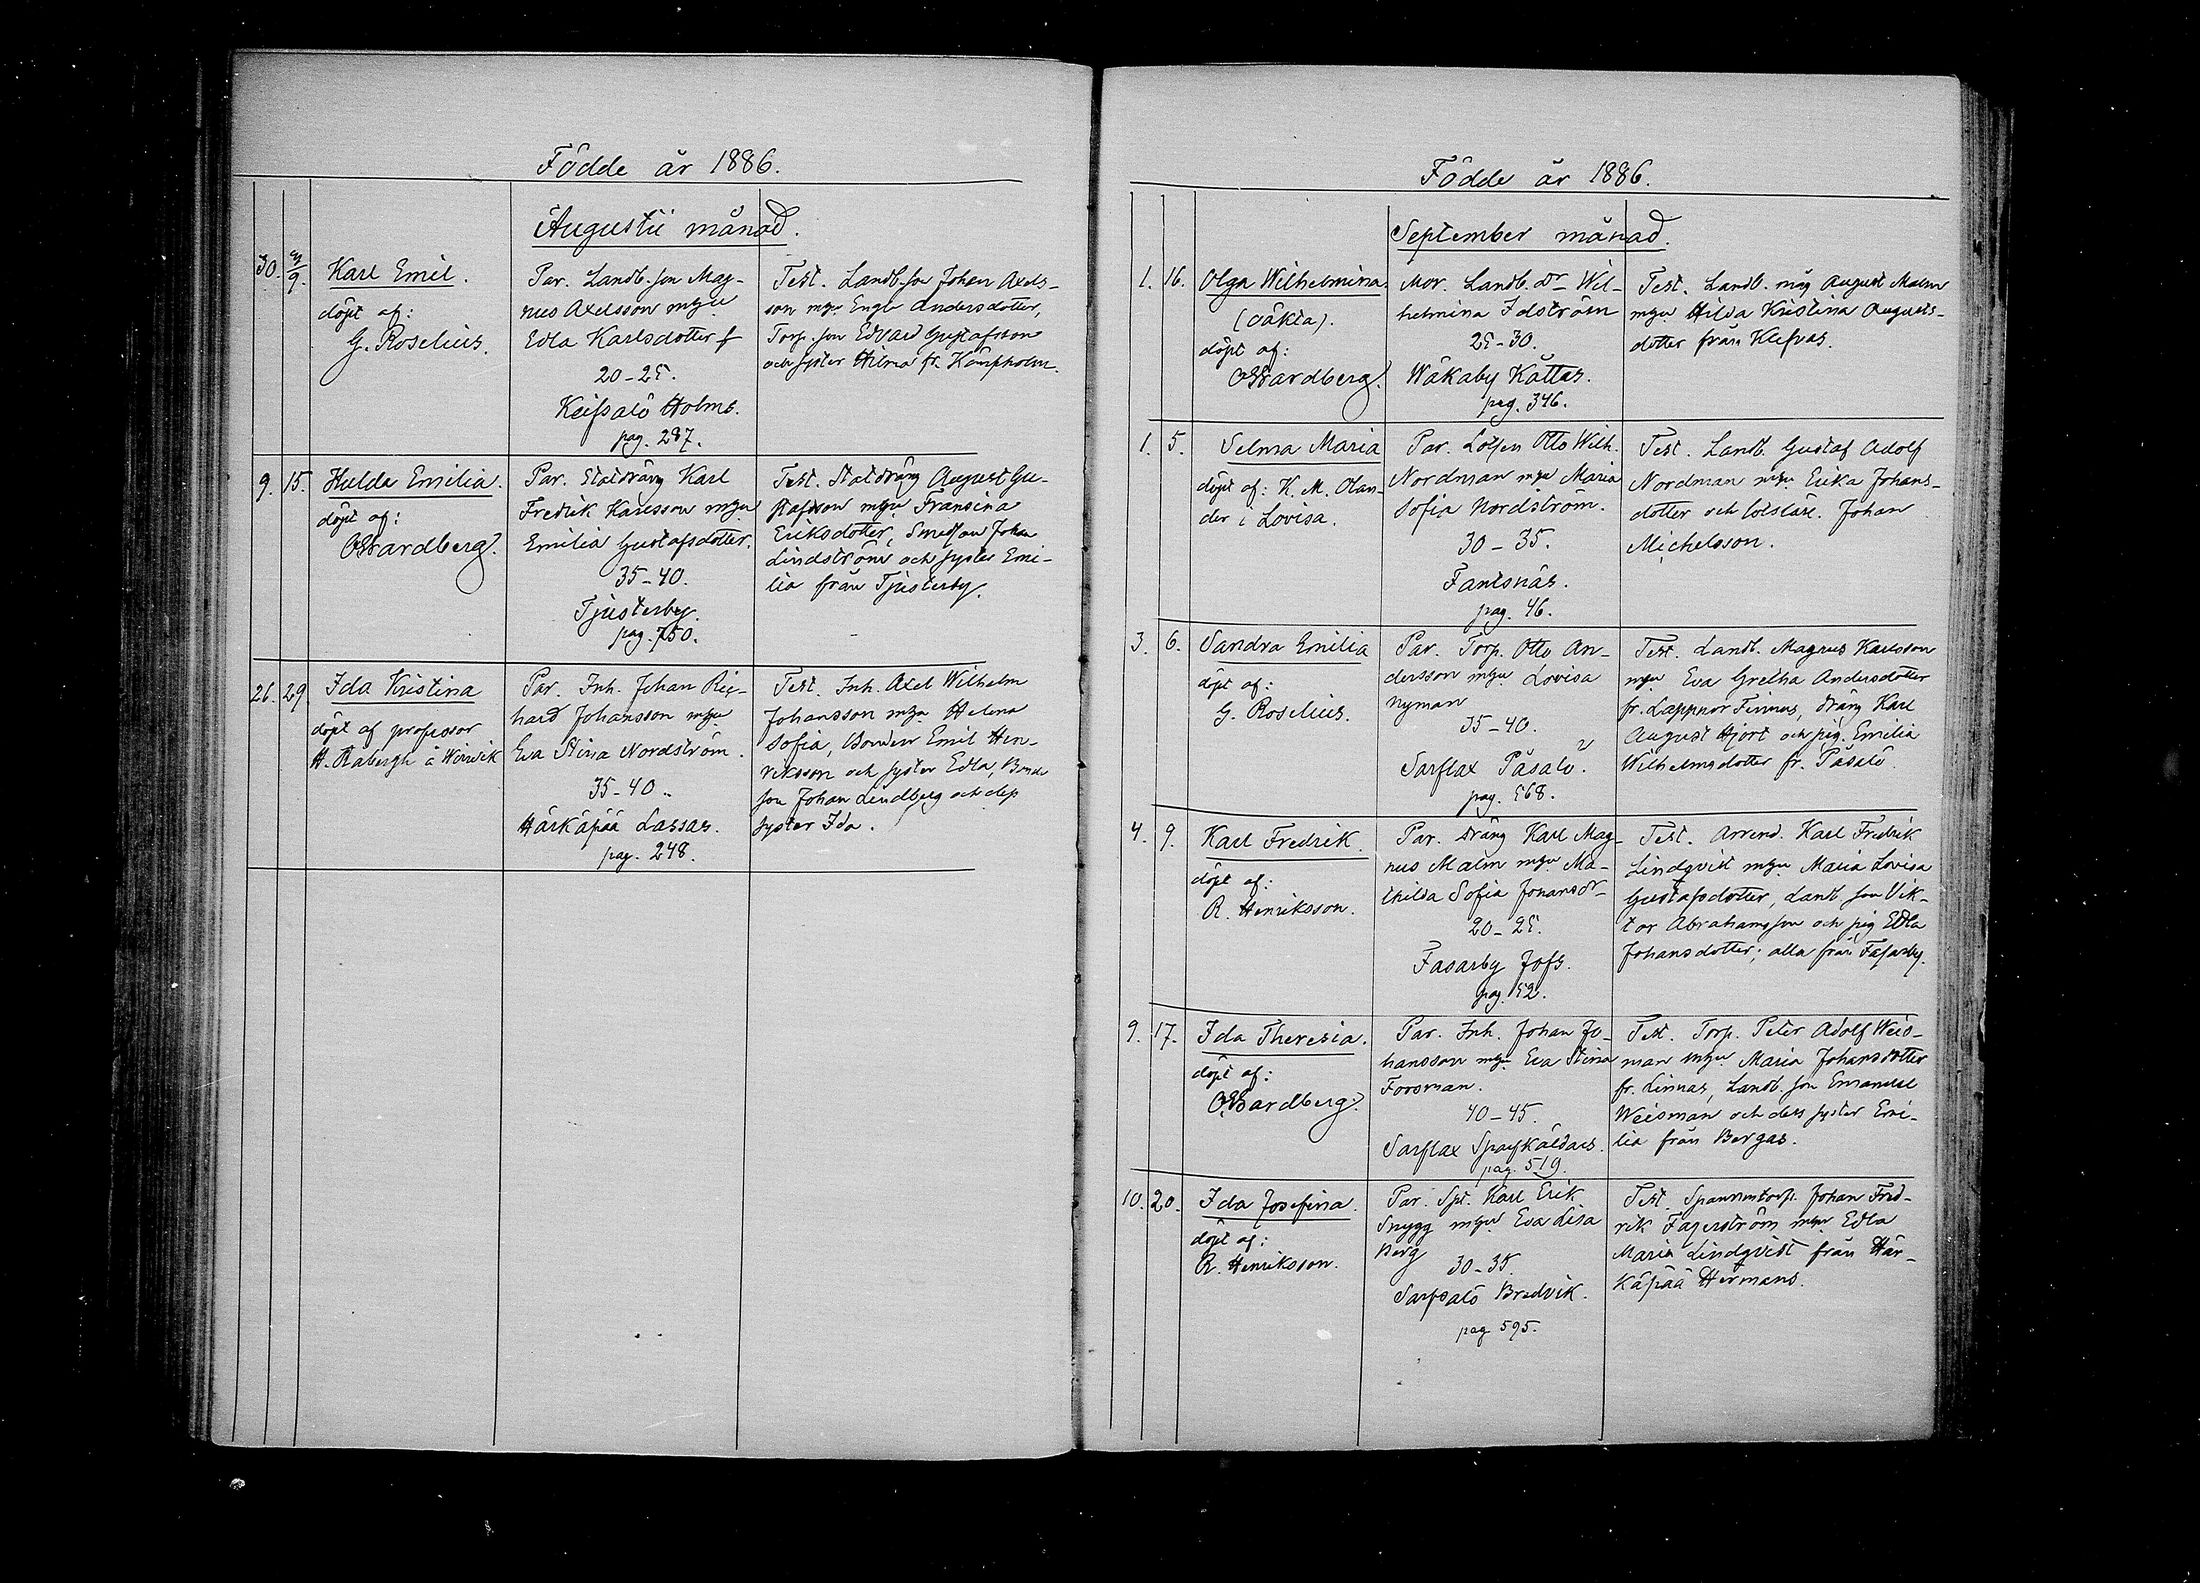 Födde år 1886.
Augusti månad.
30. 3/9. Karl Emil.
döpt af:
G. Roselius.
Par. Landb. son Mag-
nus Axelsson m hu
Edla Karlsdotter f
20-25.
Keipsalö Holms.
pag. 287.
Test. Landb. son Johan Axels-
son m hu Engla Andersdotter,
Torp. son Edvard Gustafsson
och syster Hilma fr. Kämpholm.
9. 15. Hulda Emilia.
döpt af:
O. Wardberg.
Par. Statdräng Karl
Fredrik Karlsson m hu
Emilia Gustafsdotter.
35-40.
Tjusterby.
pag. 750.
Test. Statdräng August Gu-
stafsson m hu Fransina
Eriksdotter, Smedson Johan
Lindström och syster Emi-
lia från Tjusterby.
26. 29. Ida Kristina
döpt af professor
H. Råbergh å Wärvik
Par. Inh. Johan Ric-
hard Johansson m hu
Eva Stina Nordström.
35-40.
Härkäpää Lassas.
pag. 248.
Test. Inh. Axel Wilhelm
Johansson m hu Helena
Sofia, Bonden Emil Hen-
riksson och syster Edla, Bonde
son Johan Lindberg och dess
syster Ida.
Födde år 1886.
September månad.
1. 16. Olga Wilhelmina.
(oäkta).
döpt af:
O. Wardberg.
Mor. Landb. dr Wil-
helmina Idström
25-30.
Wåkaby Kåttas.
pag. 346.
Test. Landb. måg August Malm
m hu Hilda Kristina Augusts-
dotter från Klefvas.
1. 5. Selma Maria
döpt af: K. M. Olan-
der i Lovisa.
Par. Lotsen Otto Wilh.
Nordman m hu Maria
Sofia Nordström.
30-35.
Fantsnäs.
pag. 46.
Test. Landb. Gustaf Adolf
Nordman m hu Erika Johans-
dotter och lotslär. Johan
Michelsson.
3. 6. Sandra Emilia
döpt af:
G. Roselius.
Par. Torp. Otto An-
dersson m hu Lovisa
Nyman
35-40.
Sarflax Påsalö.
pag. 568.
Test. Landb. Magnus Karlsson
m hu Eva Gretha Andersdotter
fr. Lappnor Finnas, dräng Karl
August Hjort och pig. Emilia
Wilhelmsdotter fr. Påsalö
4. 9. Karl Fredrik.
döpt af:
R. Henriksson.
Par. Dräng Karl Mag-
nus Malm m hu Ma-
thilda Sofia Johansdr
20-25.
Fasarby Jofs.
pag. 52.
Test. Arrend. Karl Fredrik
Lindqvist m hu Maria Lovisa
Gustafsdotter, Landb son Vik-
tor Abrahamsson och pig Edla
Johansdotter; alla från Fasarby.
9. 17. Ida Theresia.
döpt af:
O. Wardberg.
Par. Inh. Johan Jo-
hansson m hu Eva Stina
Forsman.
40-45.
Sarflax Sparfkäldars.
pag. 519.
Test. Torp. Peter Adolf Weis-
man m hu Maria Johansdotter
fr. Linnas, Landb. son Emanuel
Weisman och dess syster Emi-
lia från Bergas.
10. 20. Ida Josefina.
döpt af:
R. Henriksson.
Par. Spt. Karl Erik
Snygg m hu Eva Lisa
Berg
30-35.
Sarfsalö Bredvik.
pag 595.
Test. Spannmtorp. Johan Fred-
rik Fagerström m hu Edla
Maria Lindqvist från Här-
käpää Hermans.